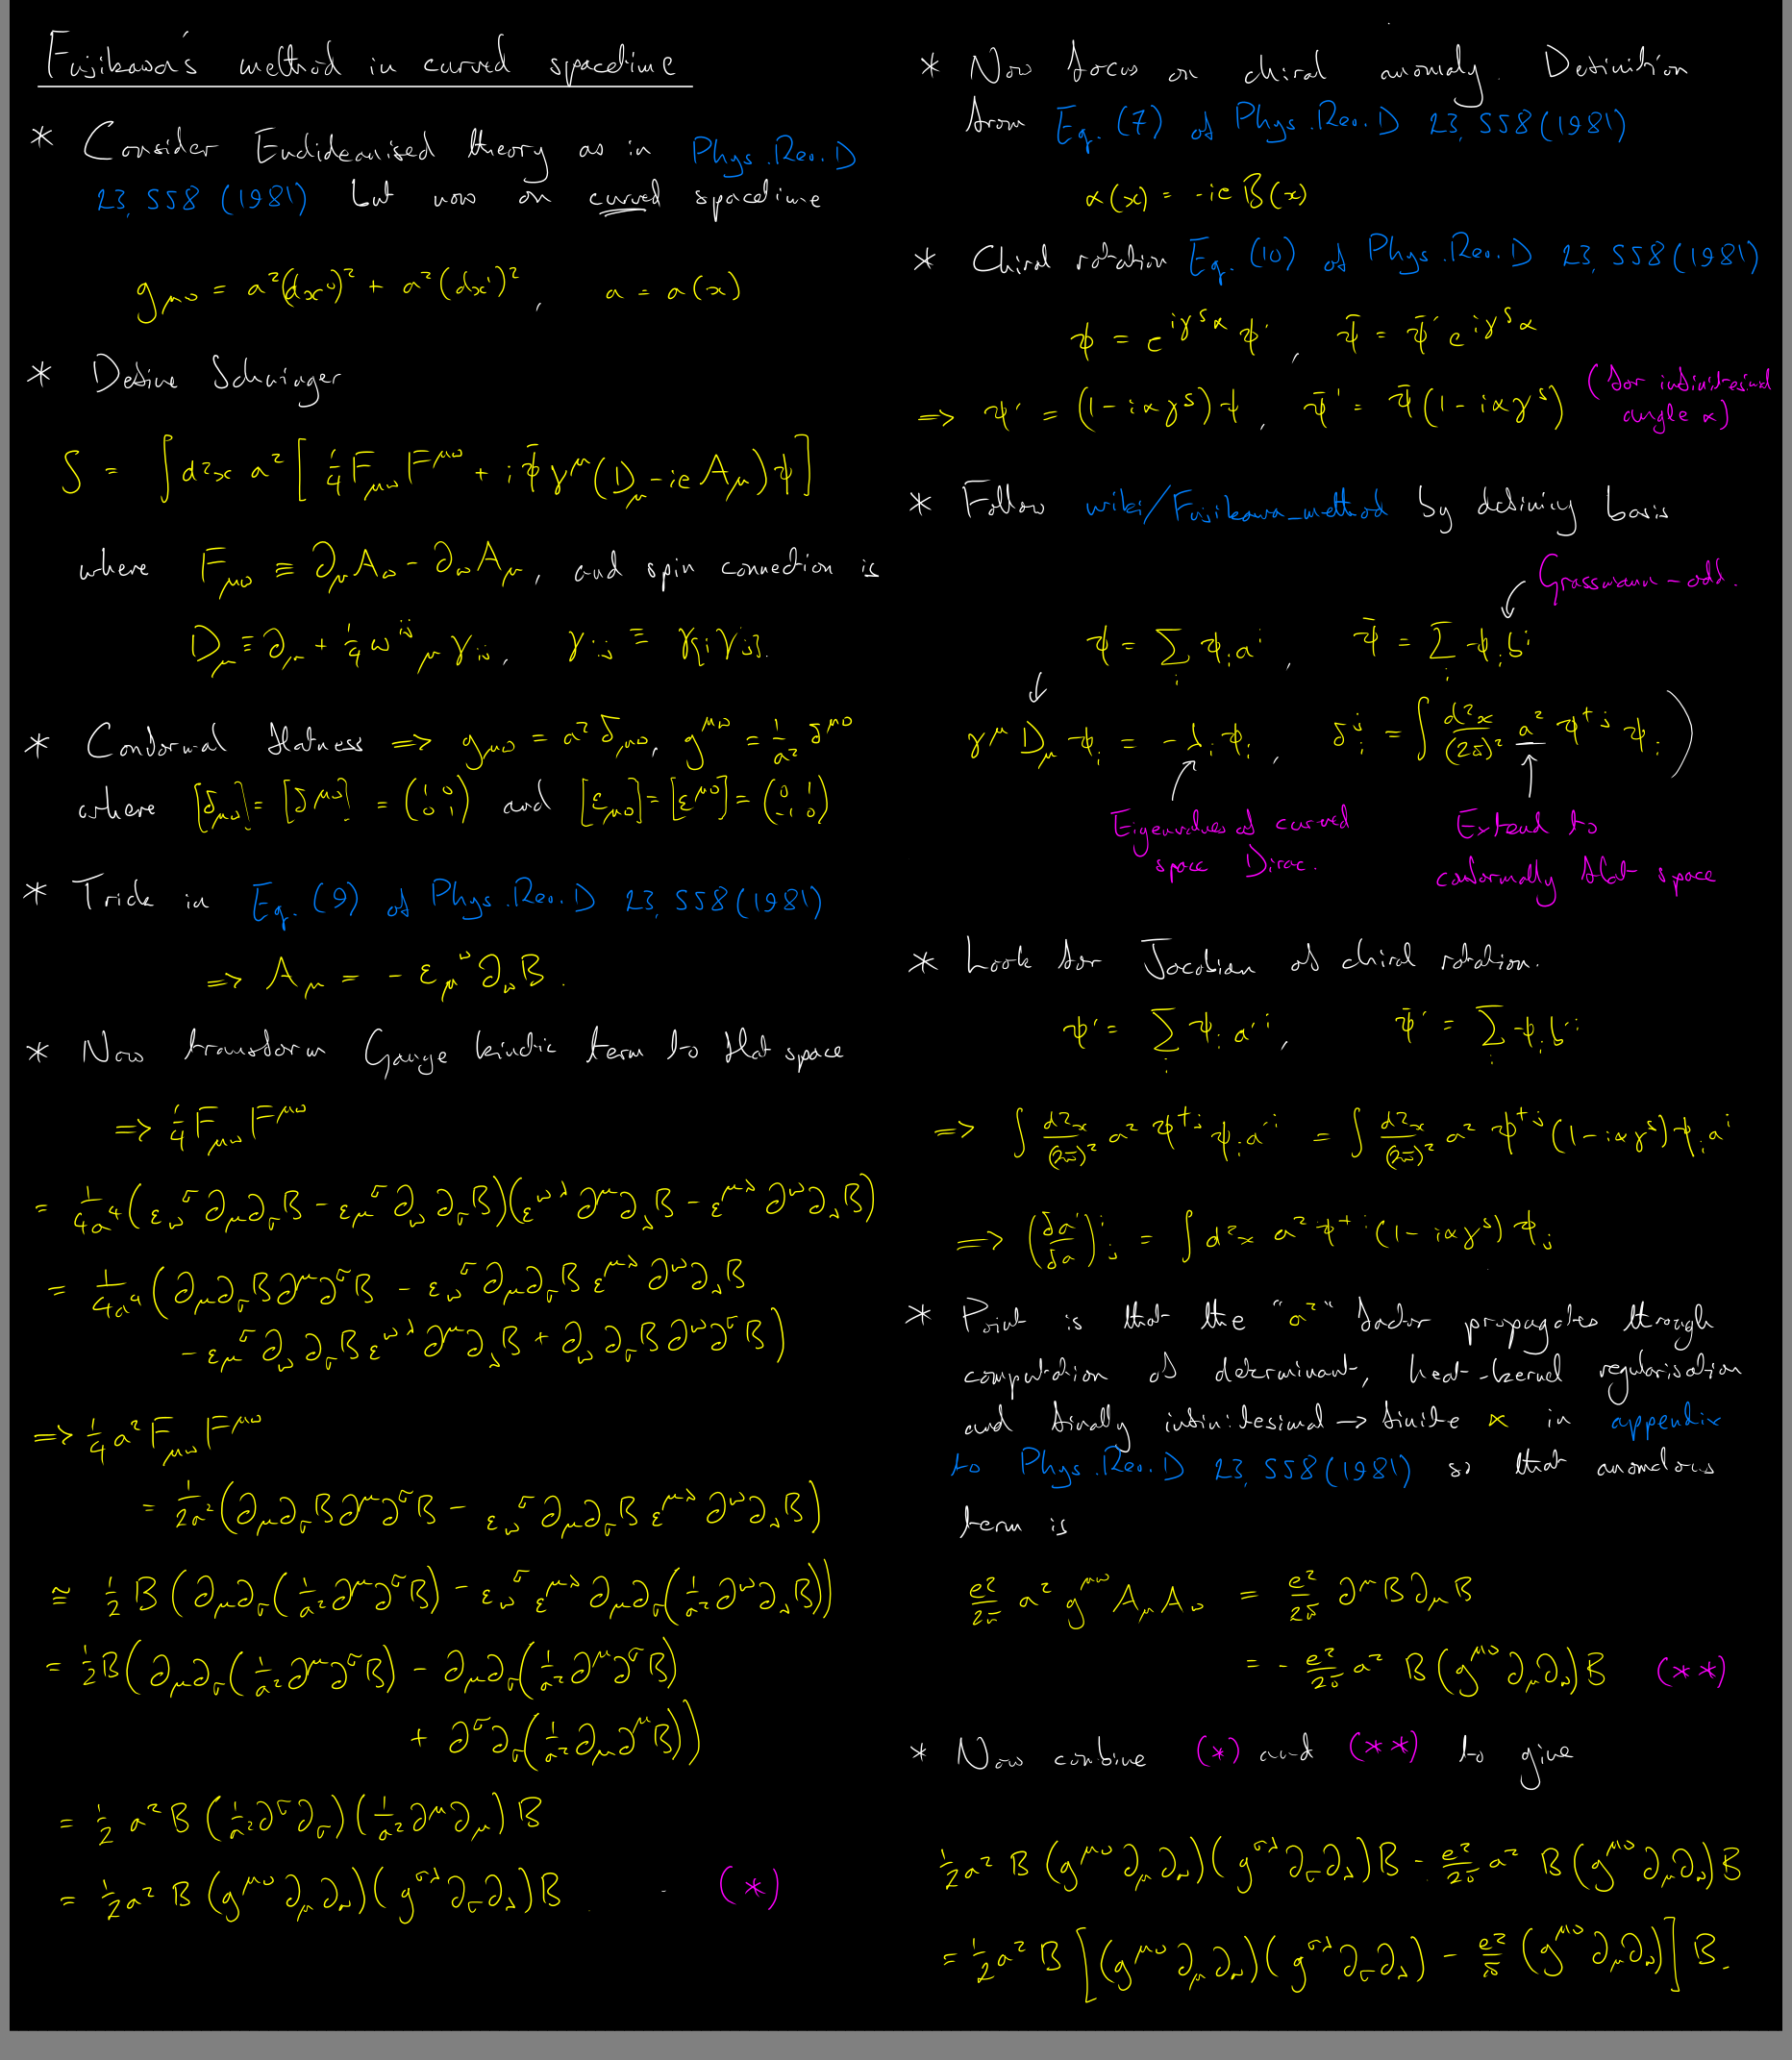 Fujikawa's method in curved spacetime
* Consider Euclideanised theory as in Phys.Rev.D
23, 558 (1981) but now on curved spacetime
g_μν = a²(dx⁰)² + a²(dxⁱ)², a = a(x)
* Define Schwinger
S = ∫d²x a² [¼ F_μν F^μν + i ψ̄ γ^μ (D_μ - ie A_μ) ψ]
where F_μν ≡ ∂_μ A_ν - ∂_ν A_μ, and spin connection is
D_μ ≡ ∂_μ + ¼ ω^ij_μ γ_ij, γ_ij ≡ γ_[i γ_j].
* Conformal flatness => g_μν = a² δ_μν, g^μν = 1/a² δ^μν
where [δ_μν] = [δ^μν] = (1 0; 0 1) and [ε_μν] = [ε^μν] = (0 1; -1 0)
* Trick in Eq. (9) of Phys.Rev.D 23, 558 (1981)
=> A_μ = - ε_μ^ν ∂_ν B.
* Now transform Gauge kinetic term to flat space
=> ¼ F_μν F^μν
= 1/4a⁴ (ε_ν^σ ∂_μ ∂_σ B - ε_μ^σ ∂_ν ∂_σ B)(ε^νλ ∂^μ ∂_λ B - ε^μλ ∂^ν ∂_λ B)
= 1/4a⁴ (∂_μ ∂_σ B ∂^μ ∂^σ B - ε_ν^σ ∂_μ ∂_σ B ε^μλ ∂^ν ∂_λ B
- ε_μ^σ ∂_ν ∂_σ B ε^νλ ∂^μ ∂_λ B + ∂_ν ∂_σ B ∂^ν ∂^σ B)
=> ¼ a² F_μν F^μν
= 1/2a² (∂_μ ∂_σ B ∂^μ ∂^σ B - ε_ν^σ ∂_μ ∂_σ B ε^μλ ∂^ν ∂_λ B)
≅ ½ B (∂_μ ∂_σ (1/a² ∂^μ ∂^σ B) - ε_ν^σ ε^μλ ∂_μ ∂_σ (1/a² ∂^ν ∂_λ B))
= ½ B (∂_μ ∂_σ (1/a² ∂^μ ∂^σ B) - ∂_μ ∂_σ (1/a² ∂^μ ∂^σ B)
+ ∂^σ ∂_σ (1/a² ∂_μ ∂^μ B))
= ½ a² B (1/a² ∂^σ ∂_σ)(1/a² ∂^μ ∂_μ) B
= ½ a² B (g^μν ∂_μ ∂_ν)(g^σλ ∂_σ ∂_λ) B. (*)
* Now focus on chiral anomaly. Definition
from Eq. (7) of Phys.Rev.D 23, 558 (1981)
α(x) = -ie B(x)
* Chiral rotation Eq. (10) of Phys.Rev.D 23, 558 (1981)
ψ = e^{iγ⁵α} ψ', ψ̄ = ψ̄' e^{iγ⁵α}
=> ψ' = (1 - iαγ⁵) ψ, ψ̄' = ψ̄ (1 - iαγ⁵) (for infinitesimal
angle α)
* Follow wiki/Fujikawa_method by defining basis
Grassmann-odd.
ψ = Σ_i ψ_i a^i, ψ̄ = Σ_i ψ_i b^i
γ^μ D_μ ψ_i = - λ_i ψ_i, δ_i^j = ∫ d²x/(2π)² a² ψ^†j ψ_i )
Eigenvalues of curved
space Dirac.
Extend to
conformally flat space
* Look for Jacobian of chiral rotation.
ψ' = Σ_i ψ_i a'^i, ψ̄' = Σ_i ψ_i b'^i
=> ∫ d²x/(2π)² a² ψ^†j ψ_i a'^i = ∫ d²x/(2π)² a² ψ^†j (1 - iαγ⁵) ψ_i a^i
=> (δa'/δa)^i_j = ∫ d²x a² ψ^†i (1 - iαγ⁵) ψ_j
* Point is that the "a²" factor propagates through
computation of determinant, heat-kernel regularisation
and finally infinitesimal → finite α in appendix
to Phys.Rev.D 23, 558 (1981) so that anomalous
term is
e²/2π a² g^μν A_μ A_ν = e²/2π ∂^μ B ∂_μ B
= - e²/2π a² B (g^μν ∂_μ ∂_ν) B (**)
* Now combine (*) and (**) to give
½ a² B (g^μν ∂_μ ∂_ν)(g^σλ ∂_σ ∂_λ) B - e²/2π a² B (g^μν ∂_μ ∂_ν) B
= ½ a² B [(g^μν ∂_μ ∂_ν)(g^σλ ∂_σ ∂_λ) - e²/π (g^μν ∂_μ ∂_ν)] B.